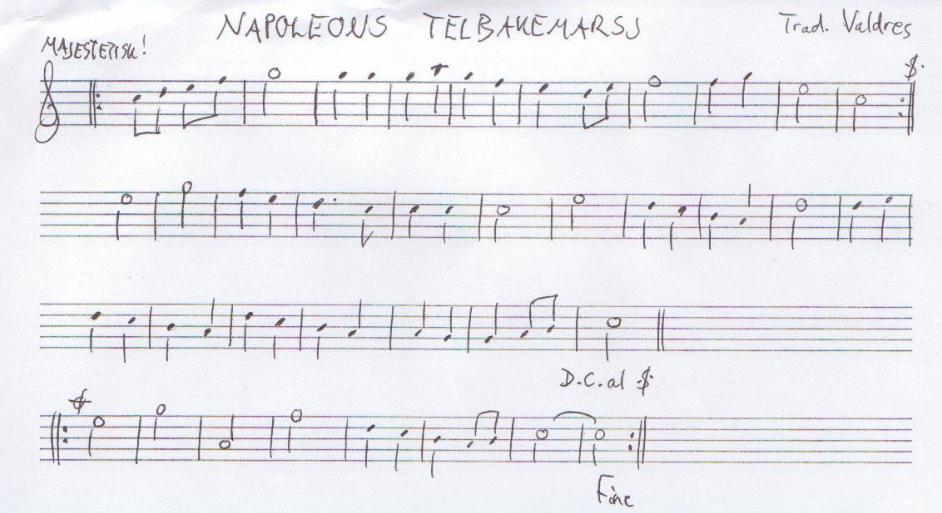 NAPOLEONS TELBAKEMARSJ
Trad. Valdres
MAJESTETISK!
D.C. al
Fine